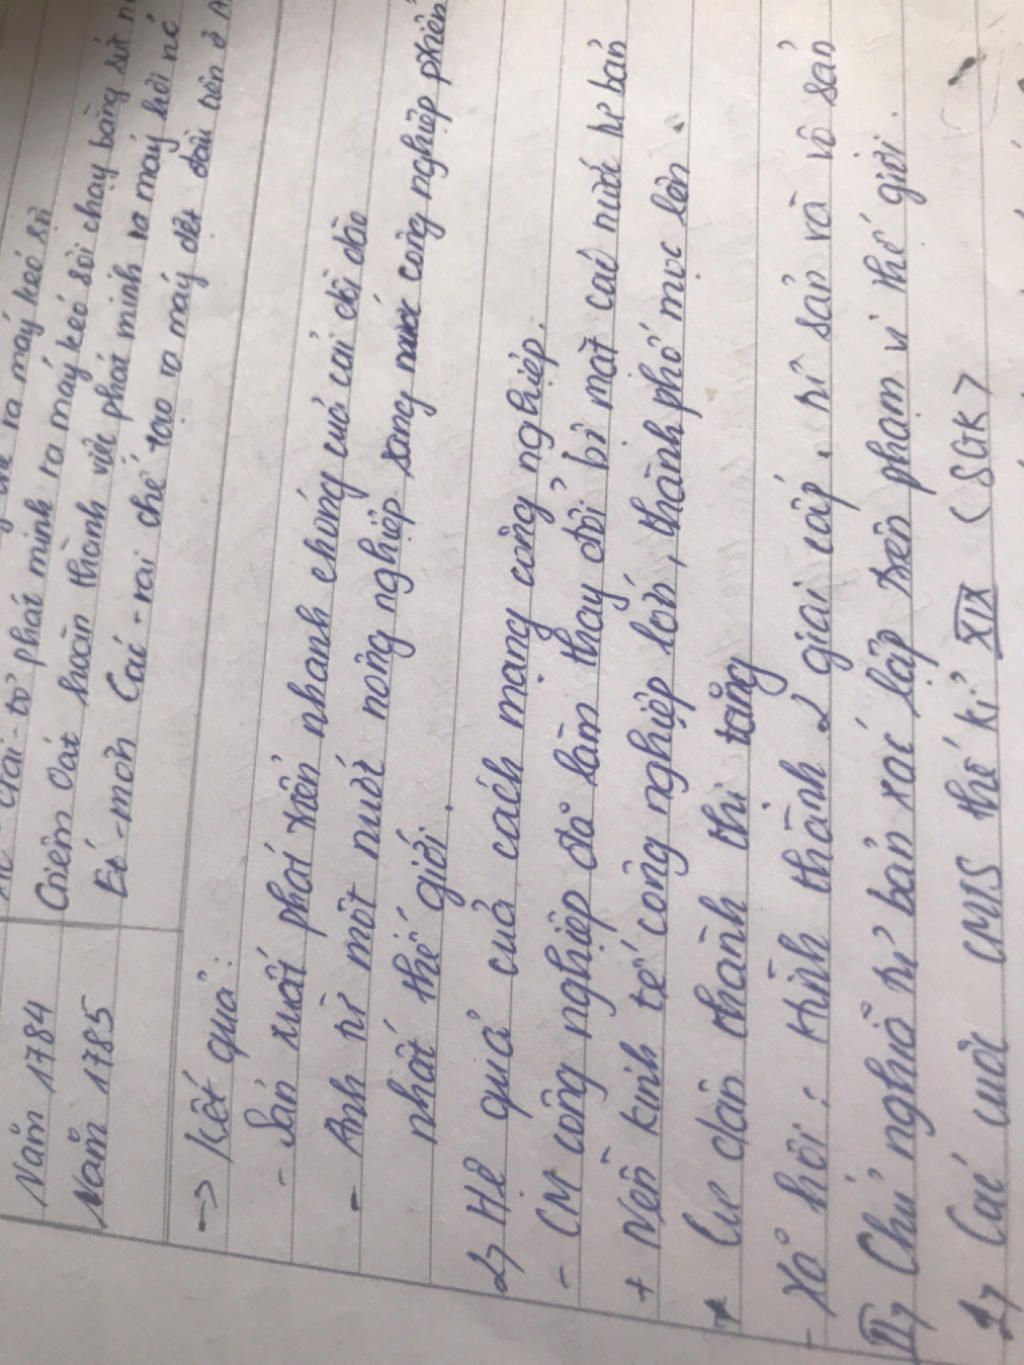 chế ra máy kéo sợi
phát minh ra máy kéo sợi chạy bằng sức
Năm 1784 Giêm Oát hoàn thành việc phát minh ra máy hơi nc
Năm 1785 Ét-mơn Các-rai chế tạo ra máy dệt đầu tiên ở A
-> Kết quả:
- Sản xuất phát triển nhanh chóng của cải dồi dào
- Anh từ một nước nông nghiệp sang nước công nghiệp phát triển
nhất thế giới.
2, Hệ quả của cách mạng công nghiệp.
- CM công nghiệp đã làm thay đổi bộ mặt các nước tư bản
+ Nền kinh tế công nghiệp lớn, thành phố mọc lên
+ Cư dân thành thị tăng
- Xã hội: Hình thành 2 giai cấp, tư sản và vô sản
II, Chủ nghĩa tư bản xác lập trên phạm vi thế giới.
1, Các cuộc CMTS thế kỉ XIX (SGK)